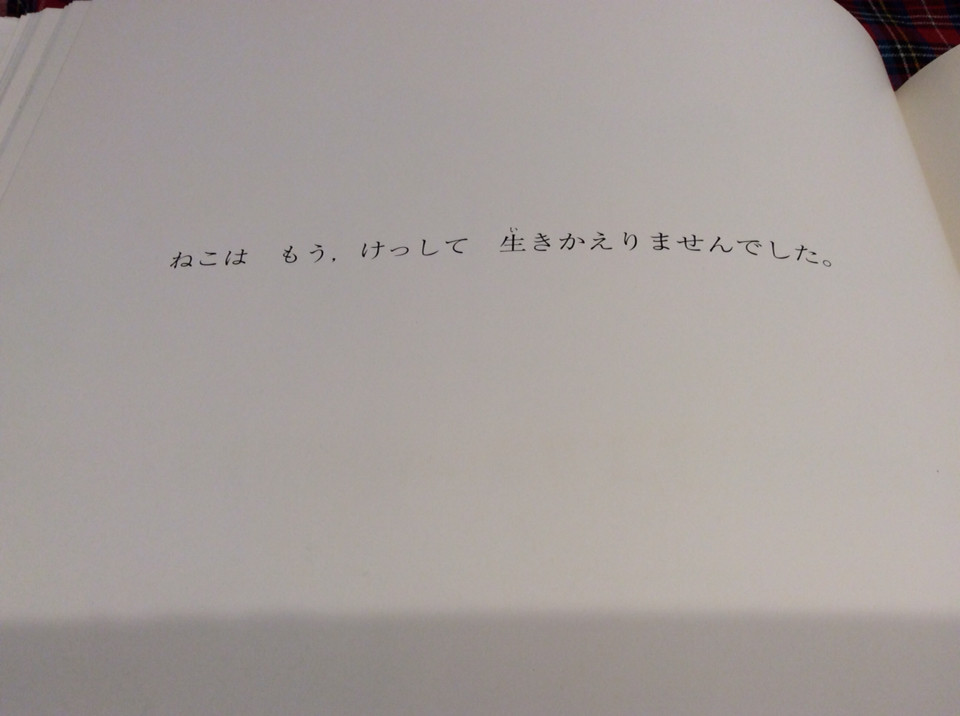 ねこは　もう，けっして　生きかえりませんでした。